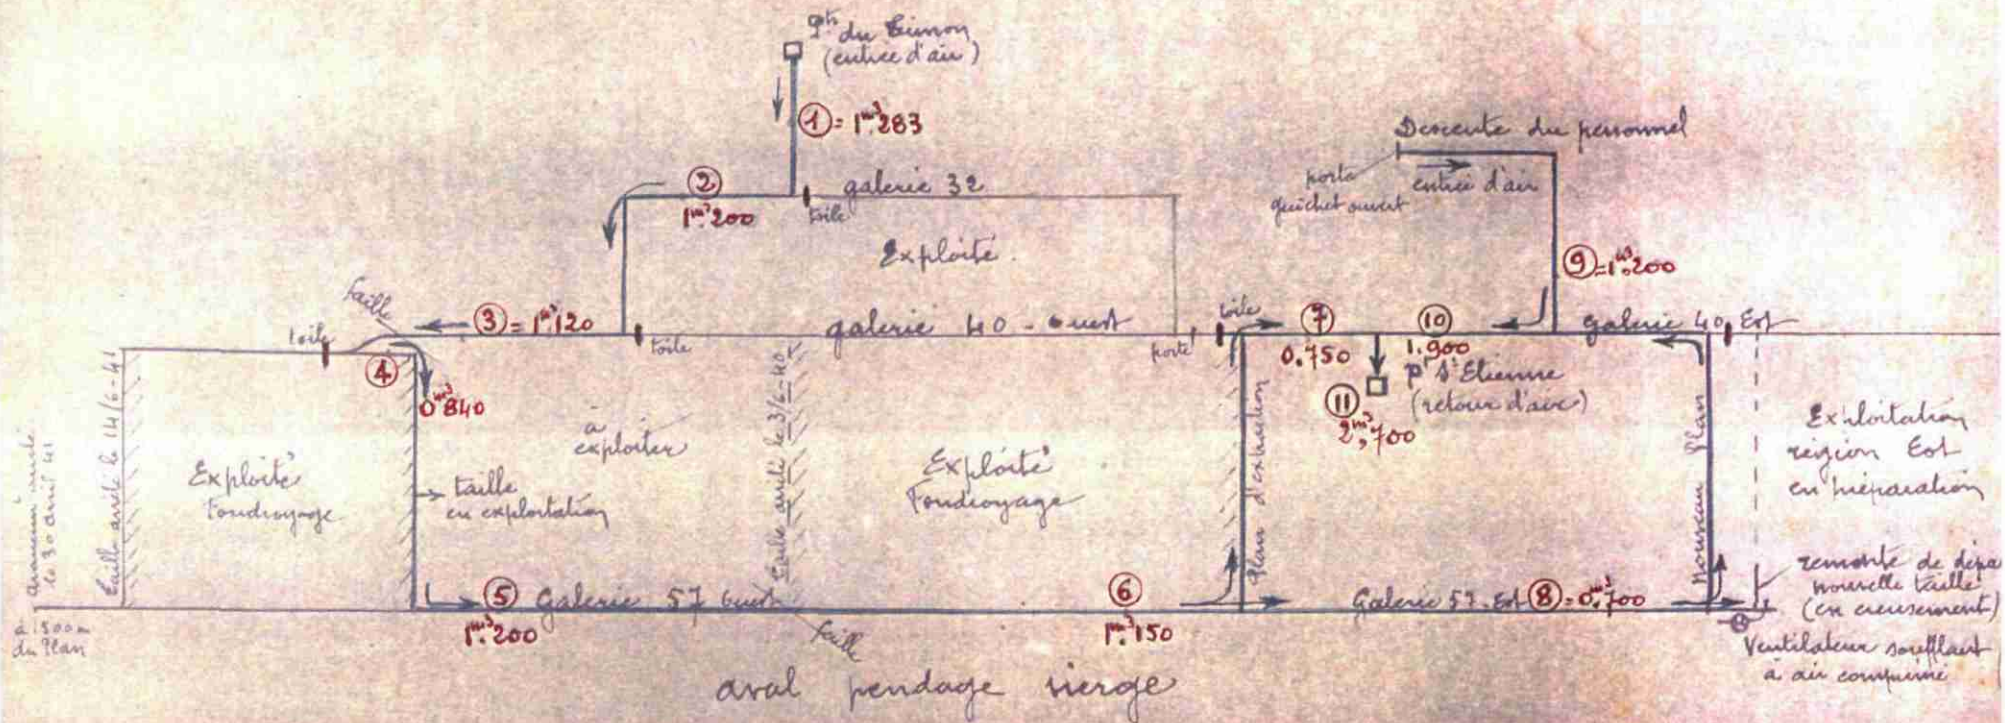 du
(entrée d'air)
① = 1m³283
②
1m³200
galerie 32
toile
Exploité.
Descente du personnel
porte
guichet ouvert
entrée d'air
⑨=1m³200
faille
③ = 1m³120
toile
toile
galerie 40 - Ouest
porte
toile
⑦
0.750
⑩
1.900
galerie 40 Est
④
0m³840
pts St Etienne
(retour d'air)
⑪
2m³,700
arrêté
le 30 avril 41
Taille arrêtée le 14/6-41
Exploité
Foudroyage
taille
en exploitation
à
exploiter
Taille arrêtée le 3/6-40
Exploité
Foudroyage
Plan d'extraction
Nouveau Plan
Exploitation
région Est
en préparation
remonte de
nouvelle taille
(en creusement)
à 1500m
du Plan
⑤ Galerie 57 Ouest
1m³200
faille
⑥
1m³150
Galerie 57. Est ⑧ = 0m³700
Ventilateur soufflant
à air comprimé
aval pendage vierge